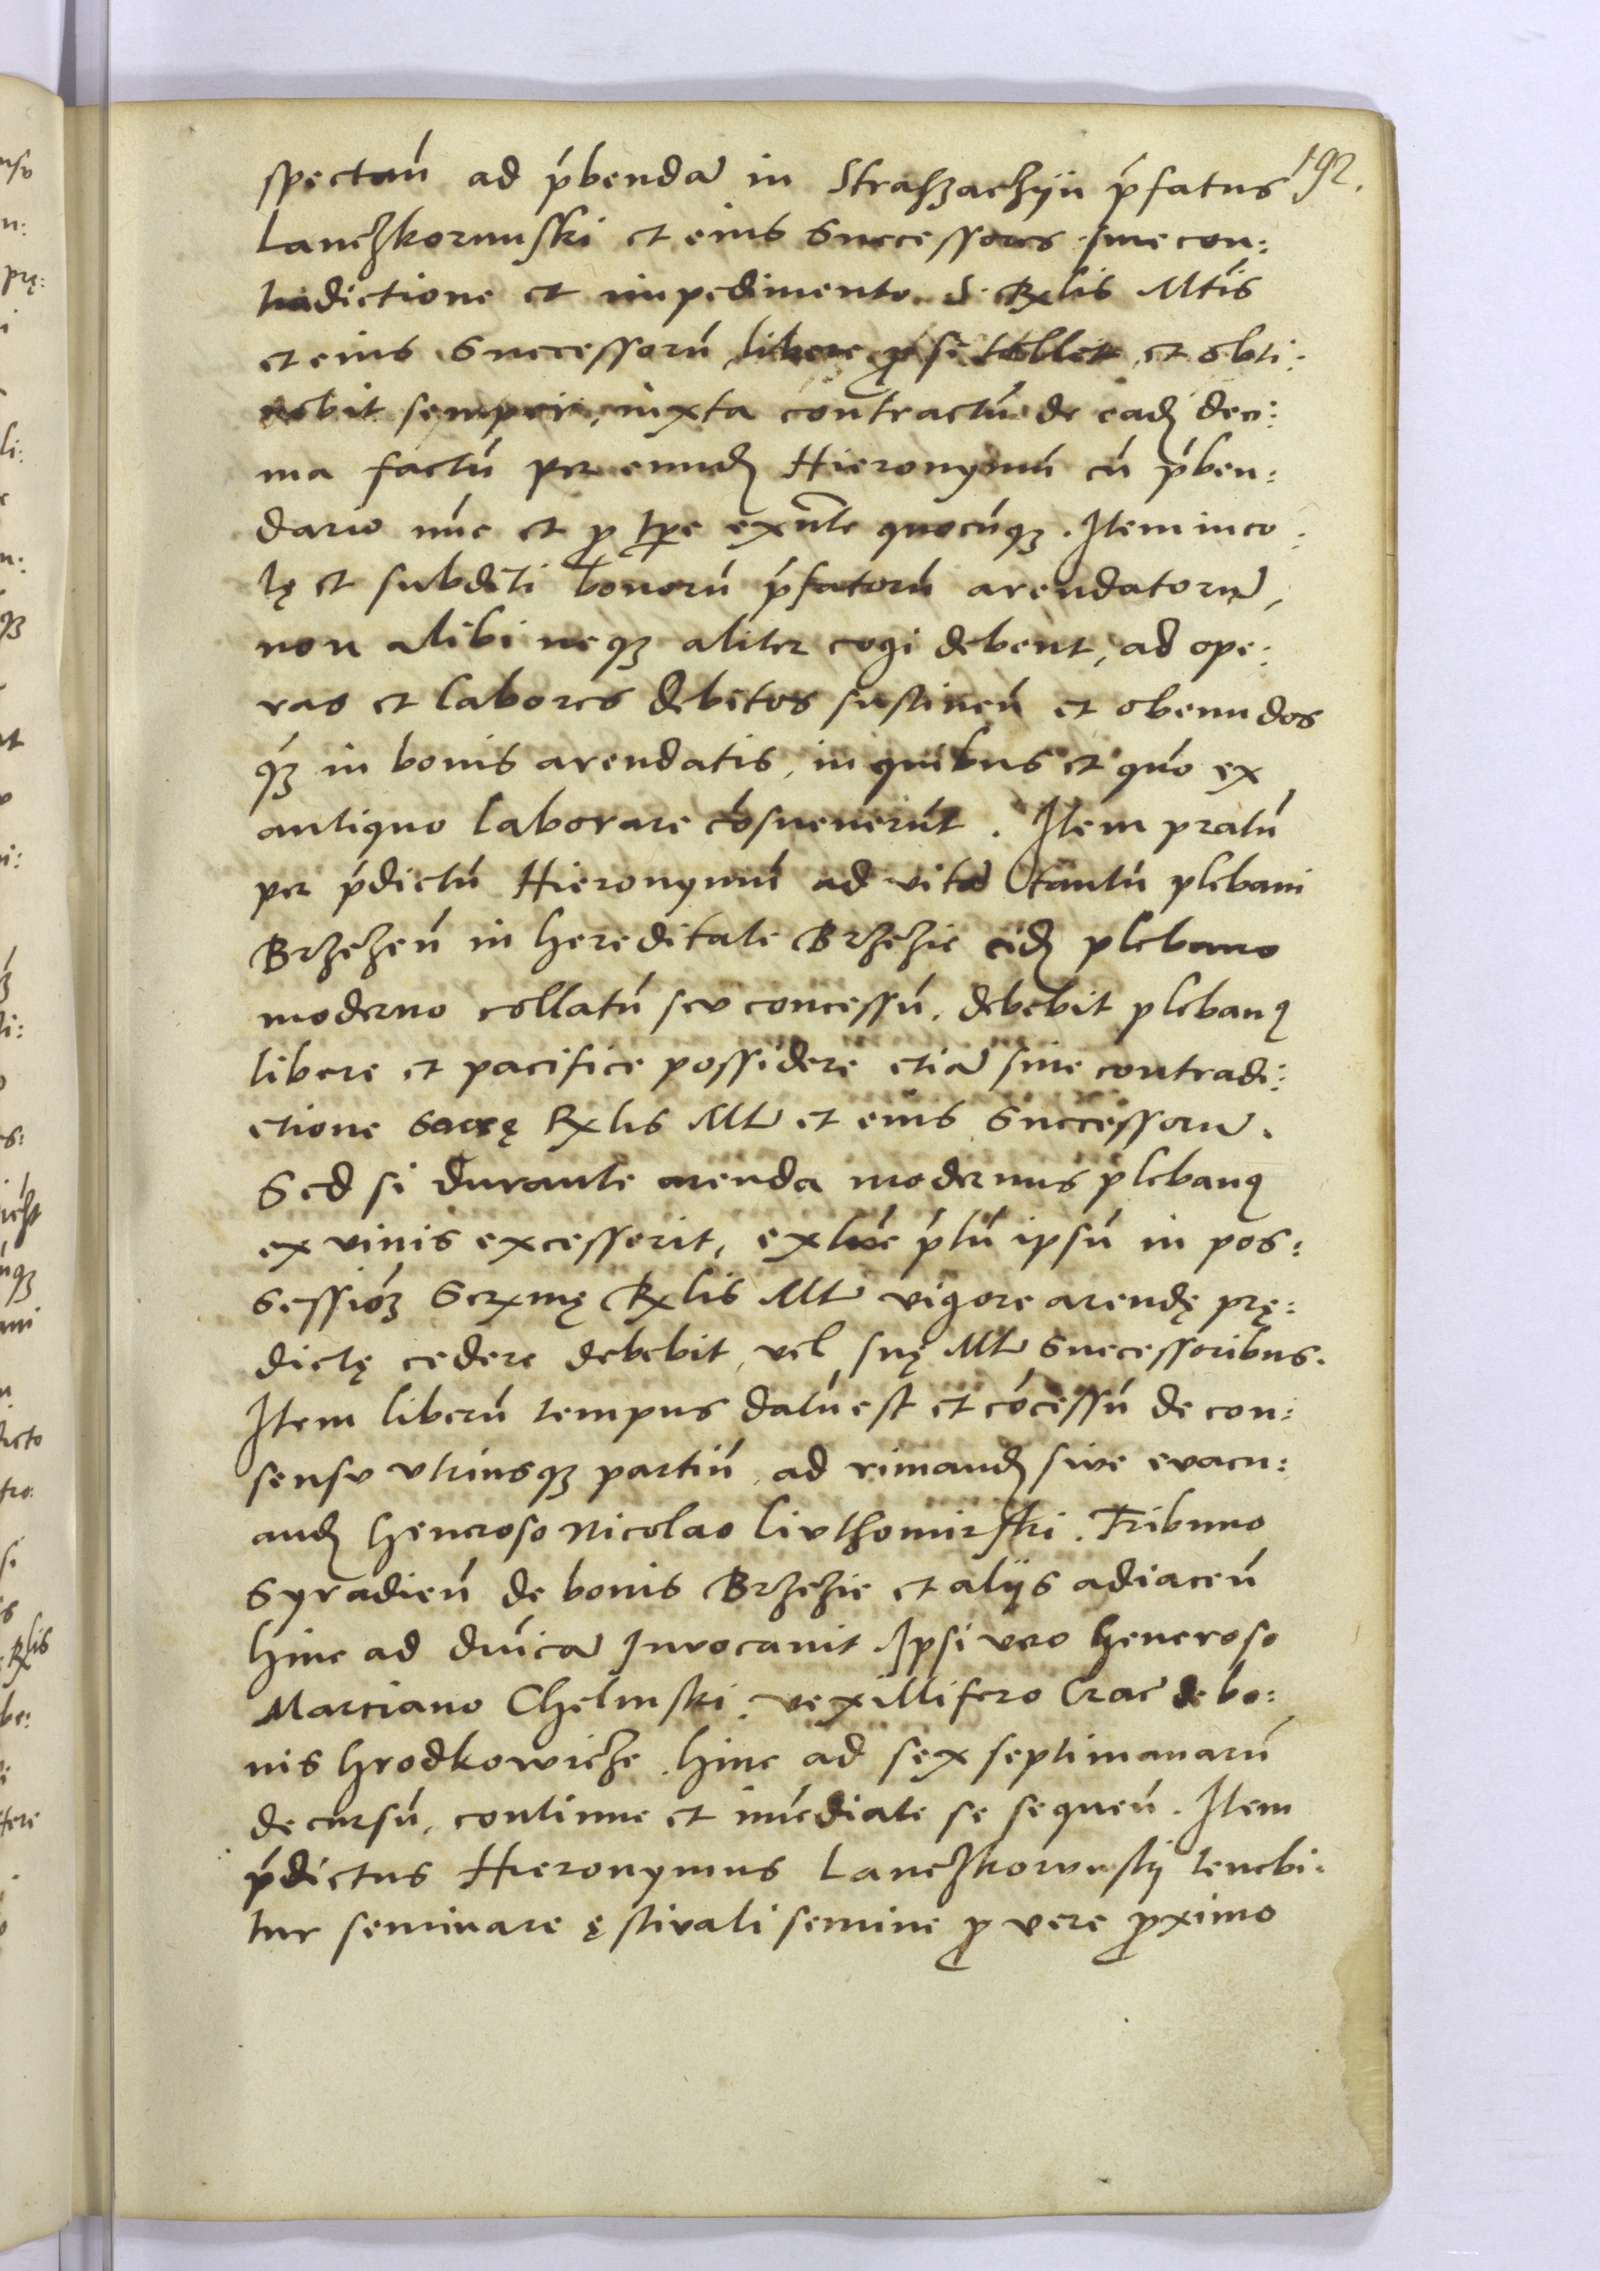 192.
spectań ad ṕbendā in Strahzachÿn ṕfatus
Lanczkorunski et eius Successores sine con:
tradictione et impedimento S. Rxlis Mtis
et eius Successorū libere ꝓ se tollet et obti:
nebit semper, iuxta contractū de eadʒ deci:
ma factū per eundʒ Hieronymū cū ṕben:
dario nūc et ꝓ tp̄e exn̄te quocūqʒ. Item inco:
lę et subditi bonorū ṕfatorū arendatorū,
non alibi neqʒ aliter cogi debent, ad ope:
ras et labores debitos sustineń et obeundos
qʒ́ in bonis arendatis, in quibus et quo ex
antiquo laborare cōsueuerūt. Item pratū
per ṕdictū Hieronymū ad vitā tantū plebani
Brzezeń in hereditate Brzezie eidʒ plebano
moderno collatū seu concessū, debebit plebanꝰ
libere et pacifice possidere etiā sine contradi:
ctione Sacrę Rxlis Mtī et eius Successorū.
Sed si durante arenda modernus plebanꝰ
ex vivis excesserit, extūc ṕtū ipsū in pos:
sessiōʒ Serxmę Rxlis Mtī vigore arendę prę:
dictę cedere debebit, vel suę Mtī successoribus.
Item liberū tempus datū est et cōcessū de con:
sensu utriusqʒ partiū ad rimandʒ sive evacu:
andʒ Generoso Nicolao Liuthomirski. Tribuno
Syradień de bonis Brzezie et alijs adiaceń
hinc ad Dn̄icā Invocavit. Ipsi vero Generoso
Marciano Chelmski, vexillifero Crac̄ de bo:
nis Grodkowicze. hinc ad sex septimanarū
decursū, continue et im̄ediate se sequeń. Item
ṕdictus Hieronymus Lanczkorunskij tenebi:
tur seminare ęstivali semine ꝓ vere ꝓximo